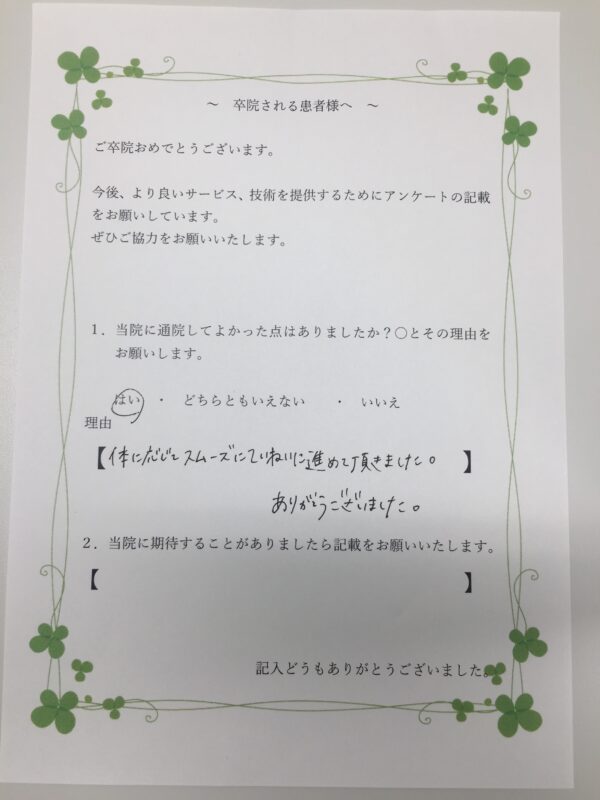 ～ 卒院される患者様へ ～
ご卒院おめでとうございます。
今後、より良いサービス、技術を提供するためにアンケートの記載
をお願いしています。
ぜひご協力をお願いいたします。
1．当院に通院してよかった点はありましたか？〇とその理由を
お願いします。
はい ・ どちらともいえない ・ いいえ
理由
【体に応じてスムーズにていねいに進めて頂きました。】
ありがとうございました。
2．当院に期待することがありましたら記載をお願いいたします。
【 】
記入どうもありがとうございました。